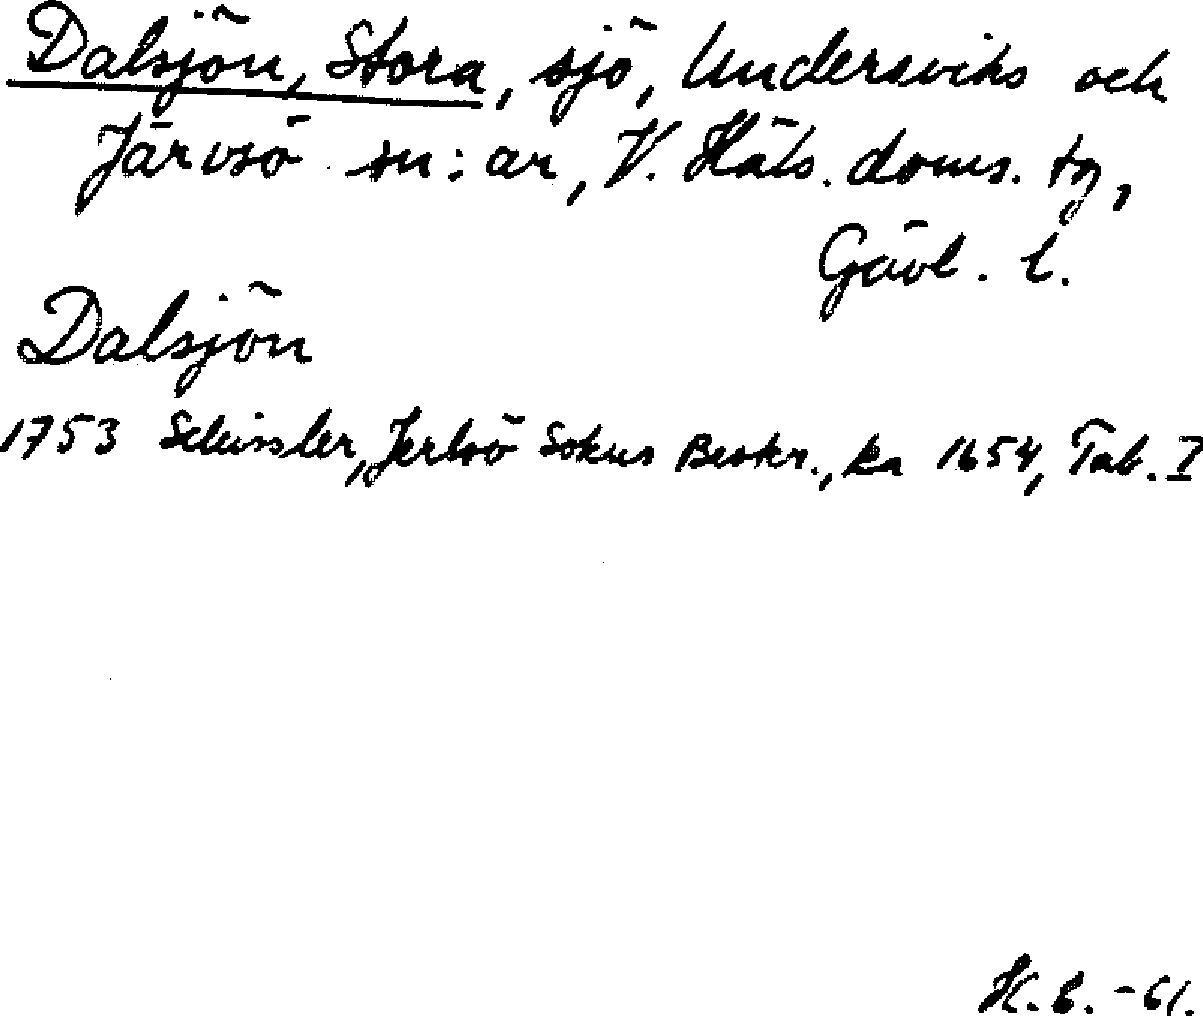 Dalsjön, Stora, sjö, Undersviks och
Järvsö sn:ar, V. Häls. doms. tg,
Gävl. l.
Dalsjön
1753 Schissler, Jerlsö Sokns Beskr., ka 1654, Tab. I
H.B. -61.